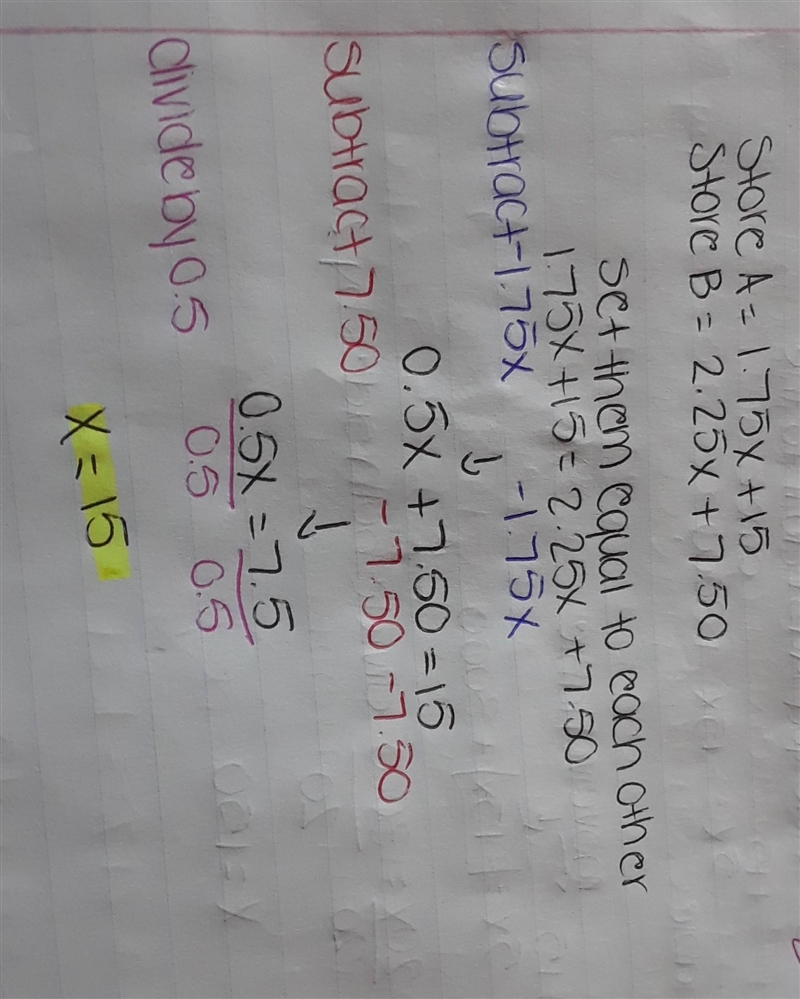 Store A = 1.75x + 15
Store B = 2.25x + 7.50
Set them equal to each other
1.75x + 15 = 2.25x + 7.50
subtract -1.75x -1.75x
↓
0.5x + 7.50 = 15
subtract 7.50 -7.50 -7.50
↓
0.5x = 7.5
divide by 0.5 0.5 0.5
x = 15